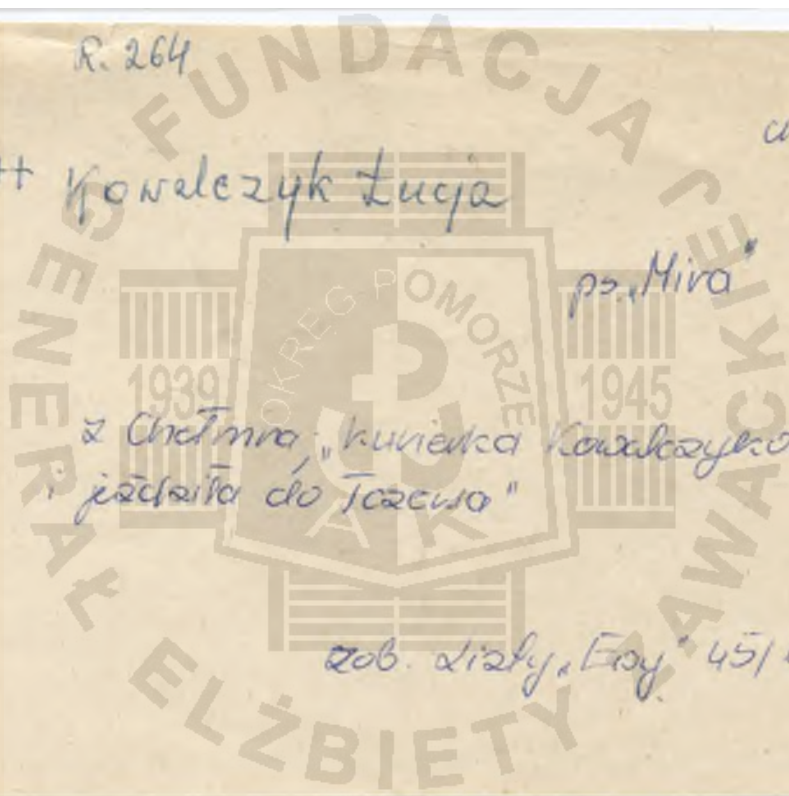 R. 264
++ Kowalczyk Łucja
ps. „Mira”
z Chełmna, „kurierka Kowalczyko
i jeździła do Tczewa”
zob. Listy „Ewy” 45/
FUNDACJA
GENERAŁ ELŻBIETY ZAWACKIEJ
OKRĘG POMORZE
1939 1945
AK